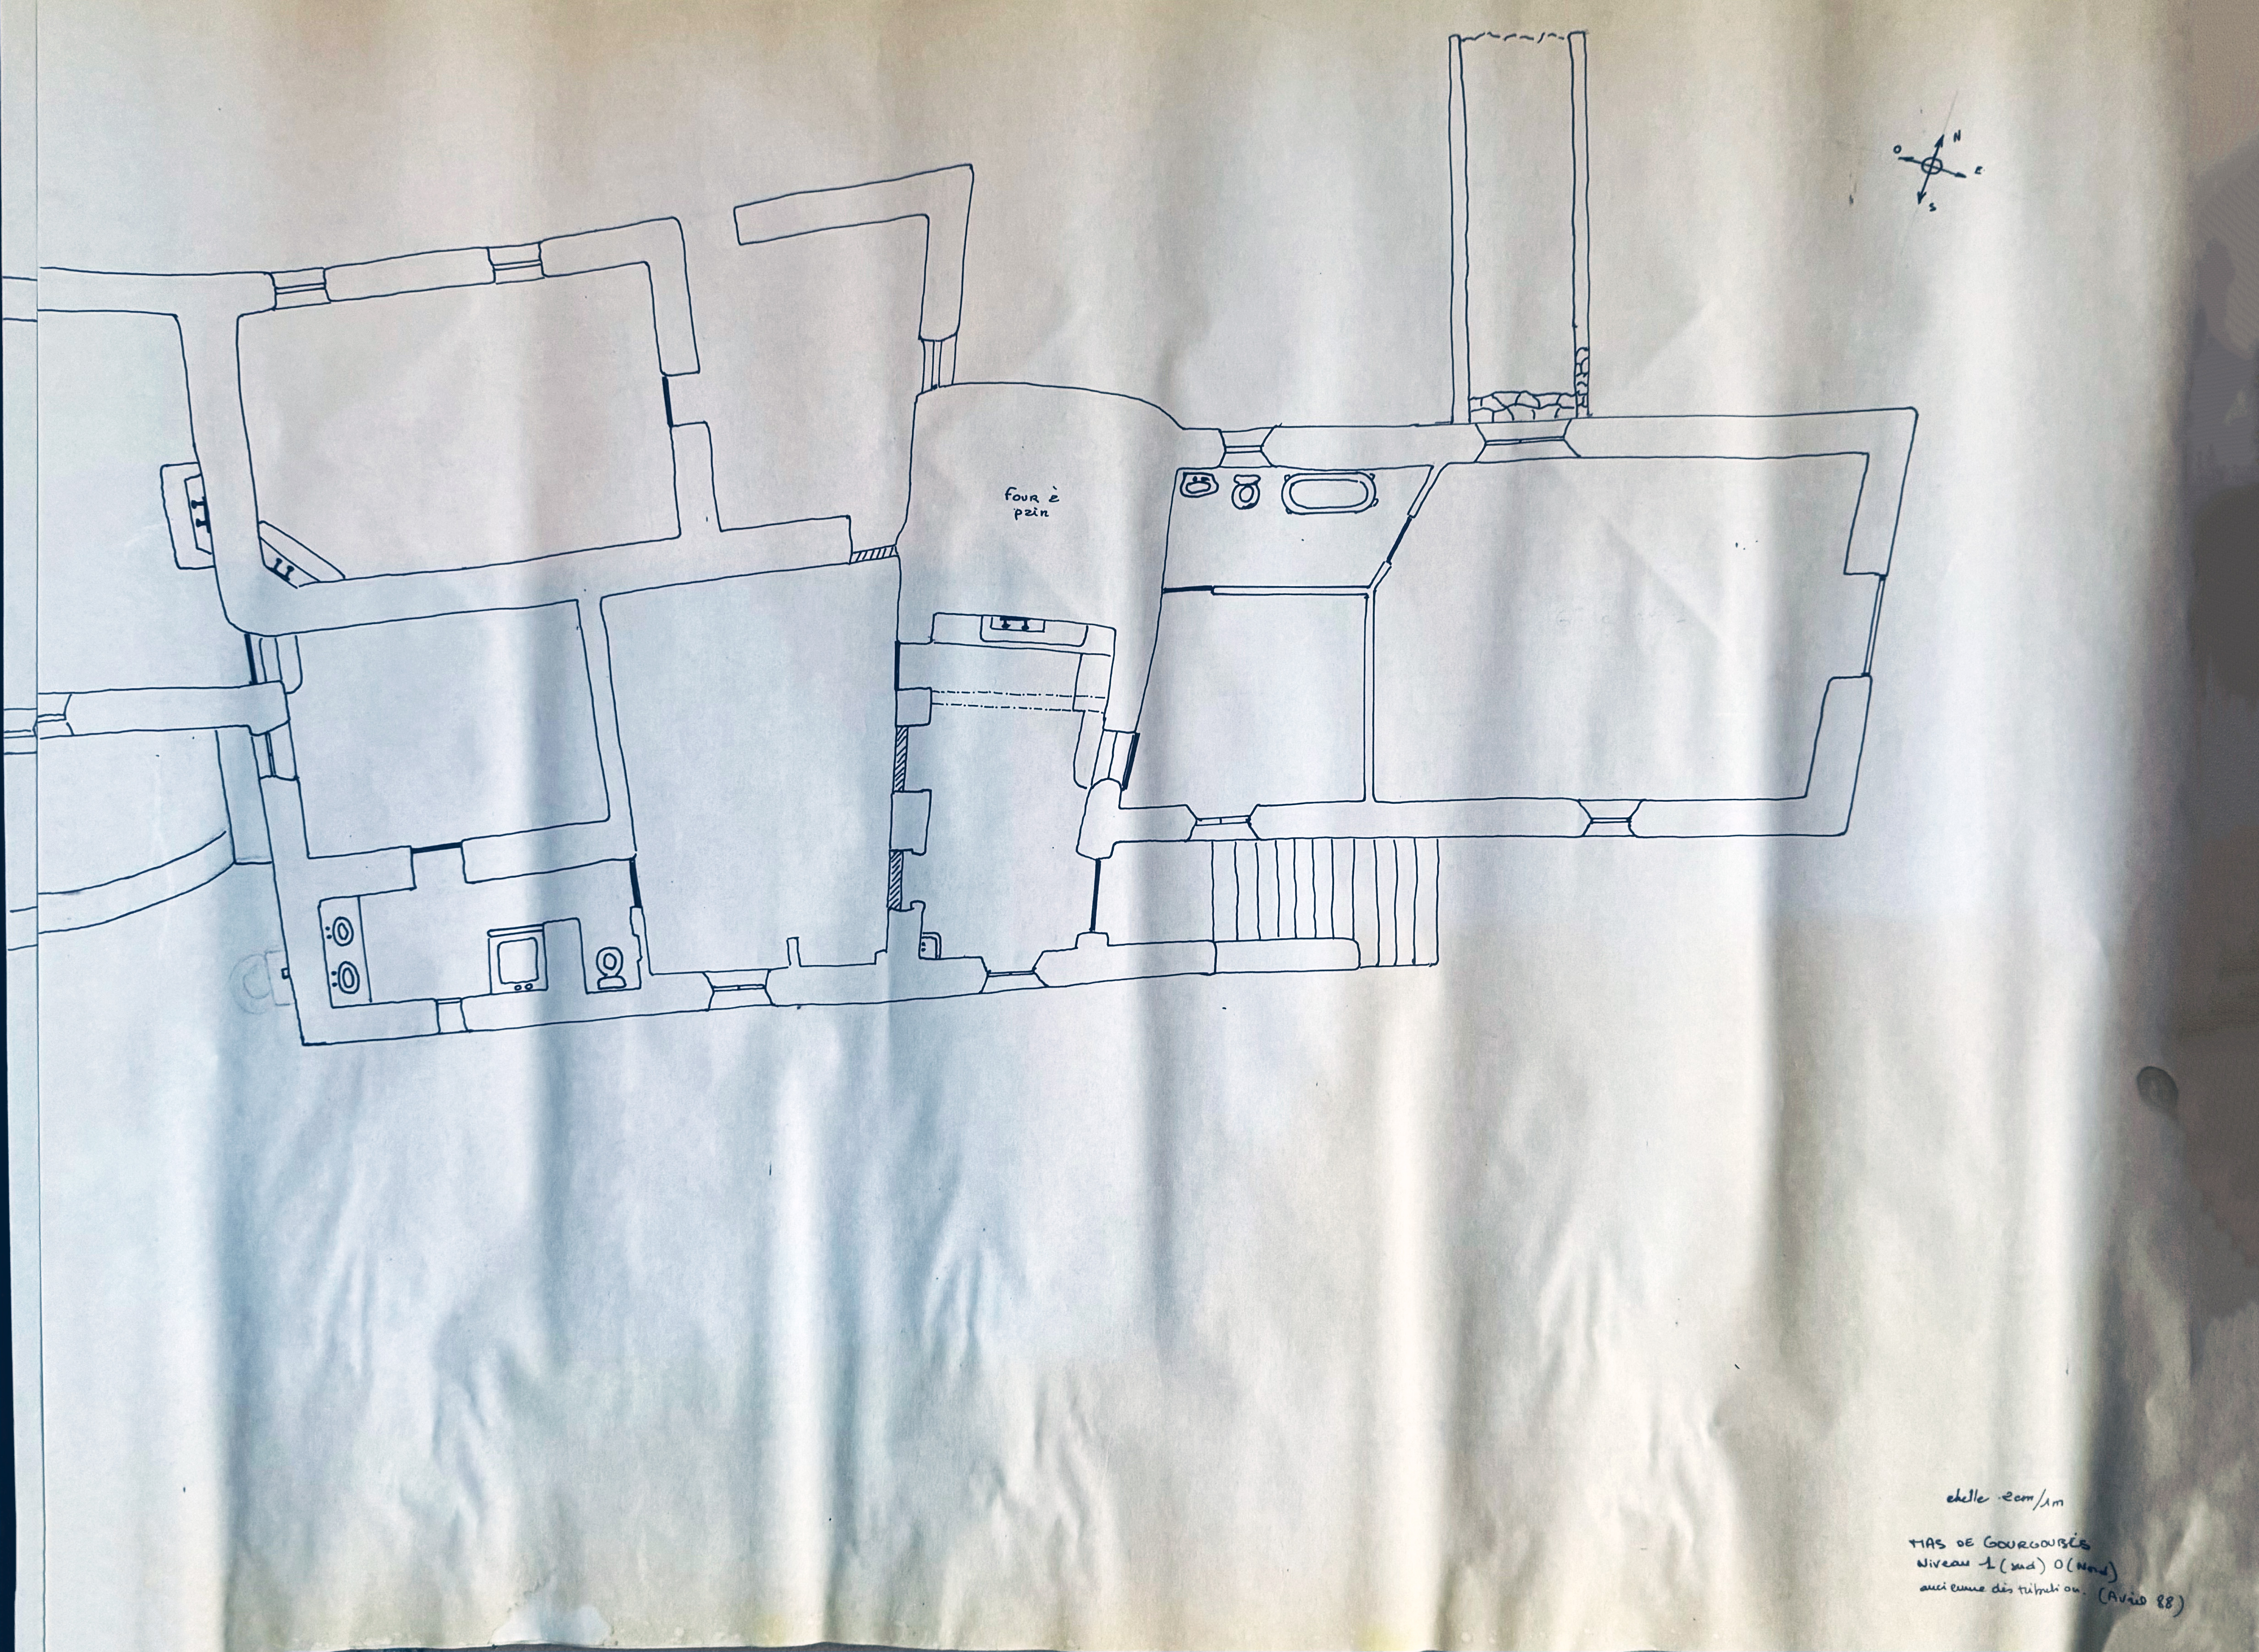 N
O
E
S
Four à
pain
echelle 2cm/1m
MAS DE GOURGOUBÈS
Niveau 1 (sud) 0 (Nord)
ancienne distribution. (Avril 88)